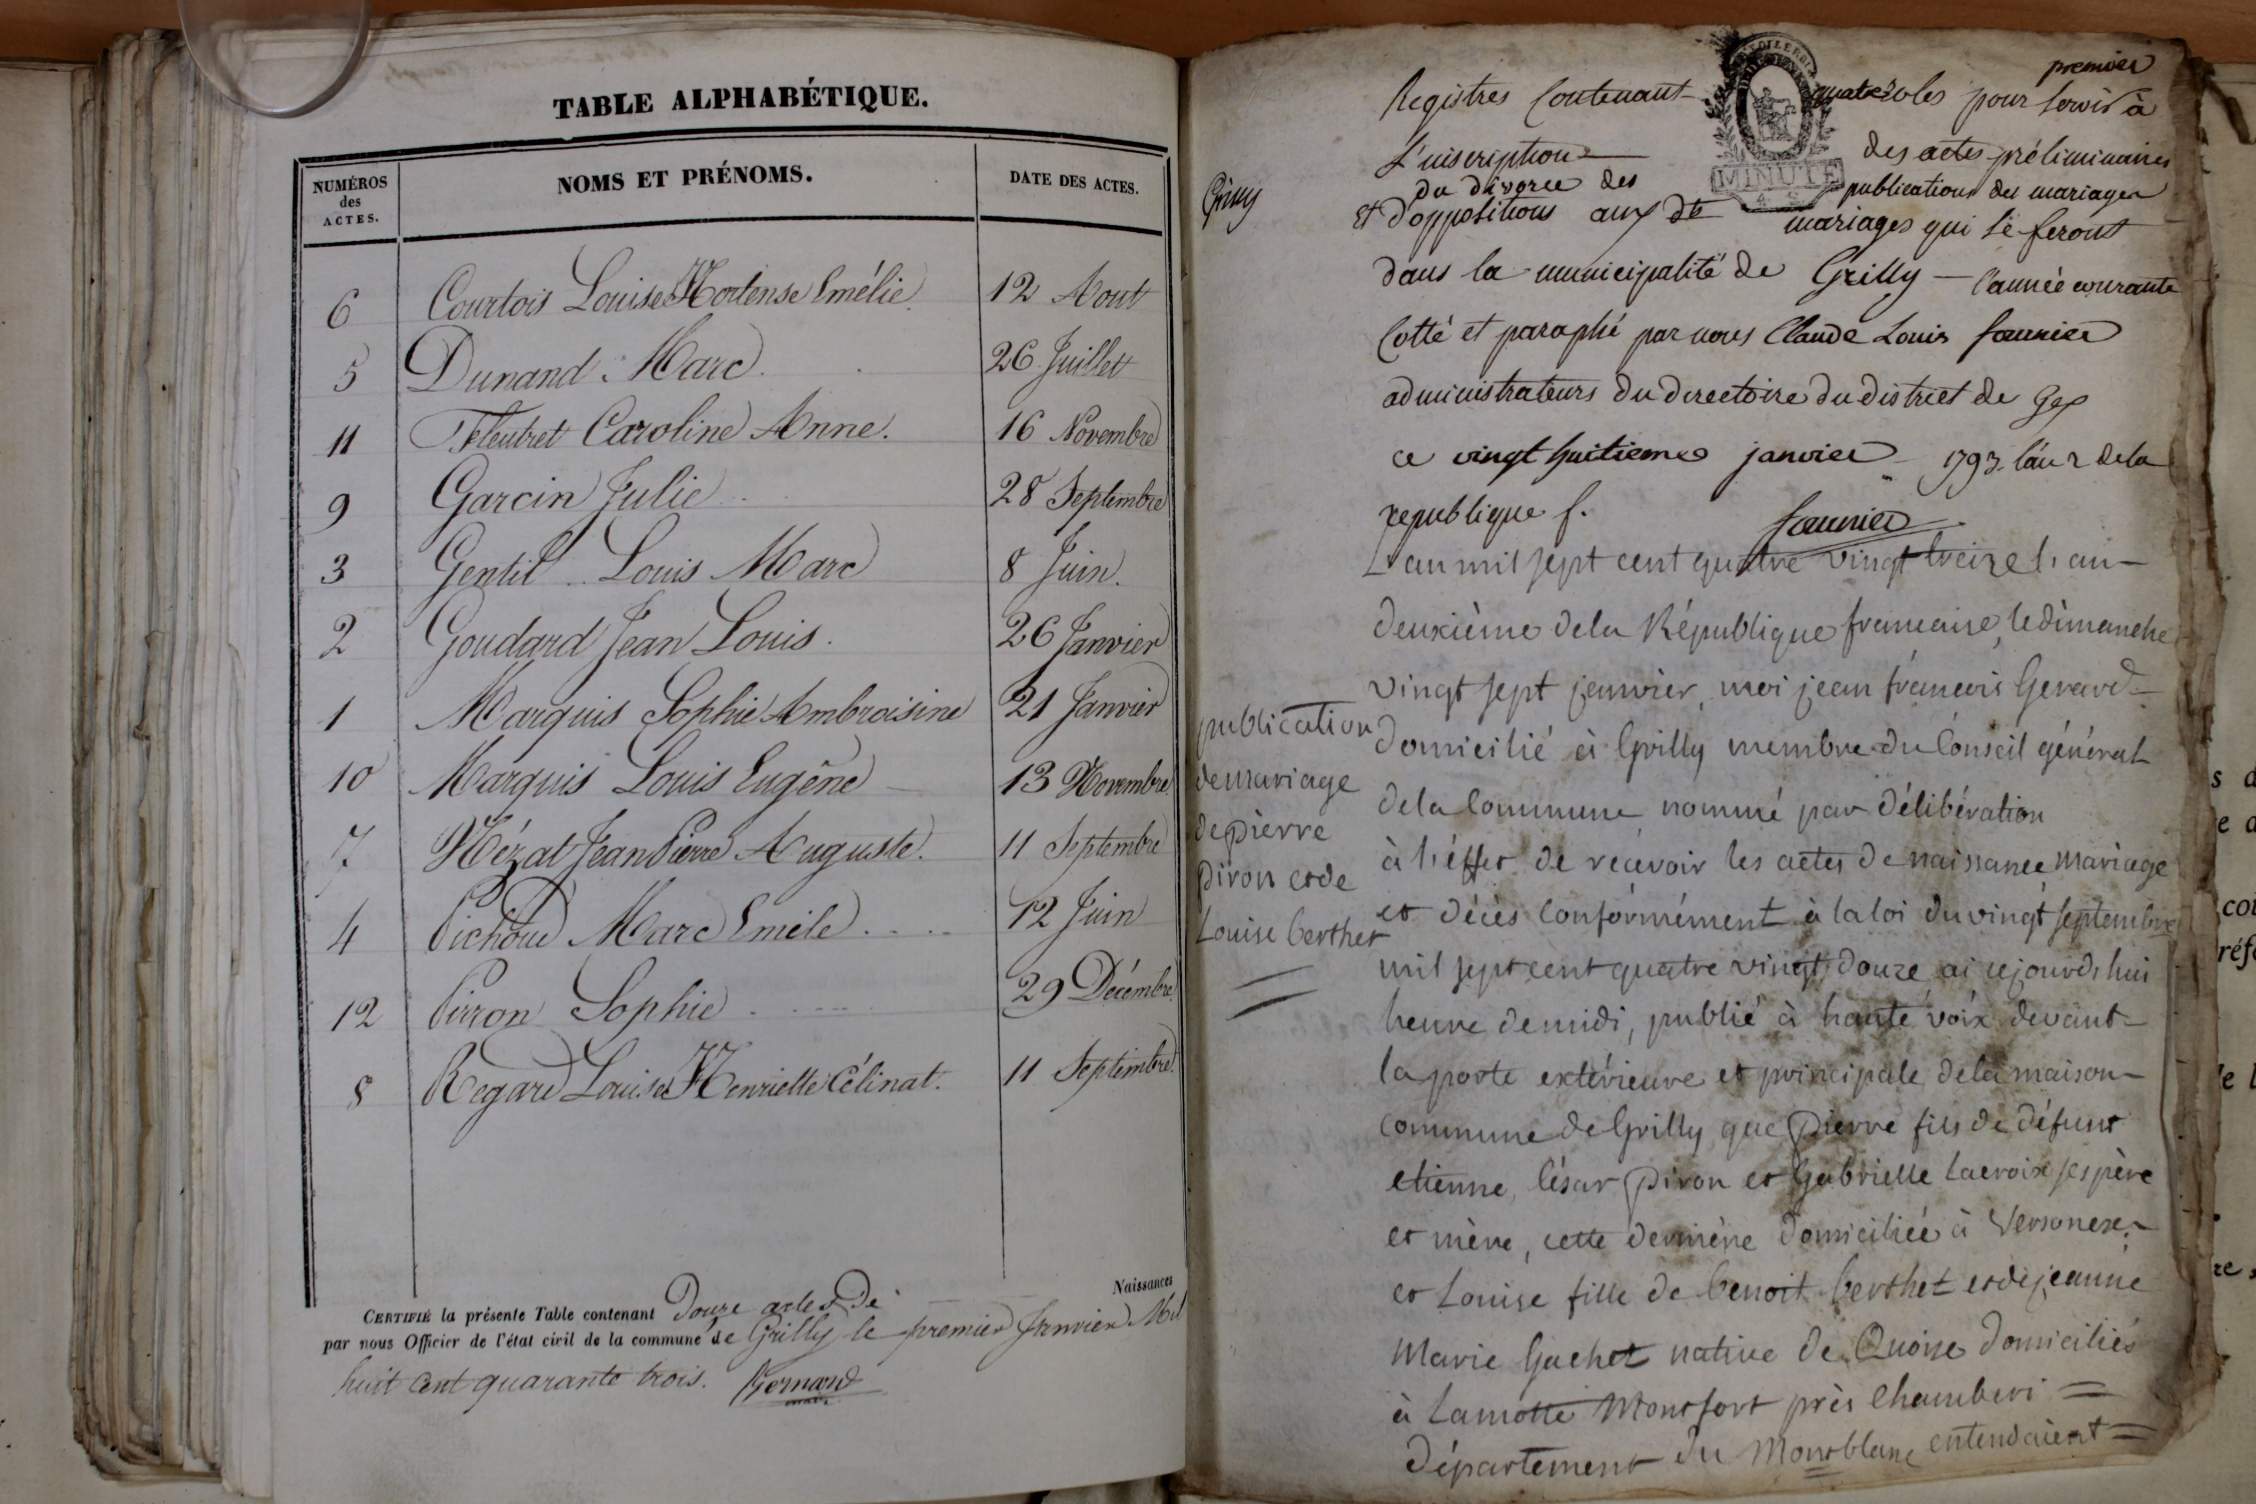 TABLE ALPHABÉTIQUE.
NUMÉROS des ACTES. NOMS ET PRÉNOMS. DATE DES ACTES.
6 Courtois Louise Hortense Emélie. 12 Aout
5 Dunand Marc. 26 Juillet
11 Fleutret Caroline Anne. 16 Novembre
9 Garcin Julie 28 Septembre
3 Gentil Louis Marc 8 Juin.
2 Goudard Jean Louis. 26 Janvier
1 Marquis Sophie Ambroisine 21 Janvier
10 Marquis Louis Eugêne 13 Novembre
7 Mézat Jean Pierre Auguste. 11 Septembre
4 Pichoud Marc Emile 12 Juin
12 Pirron Sophie 29 Décembre
8 Regard Louise Henriette Célinat. 11 Septembre
Naissances
CERTIFIÉ la présente Table contenant Douze actes De
par nous Officier de l'état civil de la commune de Grilly le premier Janvier Mil
huit cent quarante trois.
premier
Registres Contenant quatre roles pour servir à
L'inscription des actes préliminaires
du divorce des publications des mariages
Et d'oppositions aux dts mariages qui se feront
MINUTE
dans la municipalité de Grilly l'année courante
Cotté et paraphé par nous Claude Louis fournier
administrateurs du directoire du district de Gex
ce vingt huitieme janvier 1793 l'an 2 de la
republique f.
fournier
L'an mil sept cent quatre vingt treize l'an
deuxième de la République francaise, le dimanche
vingt sept janvier, moi jean francois Gerard
domicilié à Grilly membre du Conseil général
de la Commune nommé par délibération
à l'éffet de recevoir les actes de naissance mariage
et décès conformément à la loi du vingt septembre
mil sept cent quatre vingt douze ai cejourd'hui
heure de midi, publié à haute voix devant
la porte extérieure et principale de la maison
commune de Grilly que pierre fils de défunt
etienne, César piron et Gabrielle Lacroix ses père
et mère, cette dernière domiciliée à Versonex
et Louise fille de benoit berthet et de jeanne
Marie Gachet native de Quoise domiciliés
à Lamotte Montfort près Chamberi
département du Montblanc entendaient
publication
de mariage
de pierre
piron et de
Louise berthet